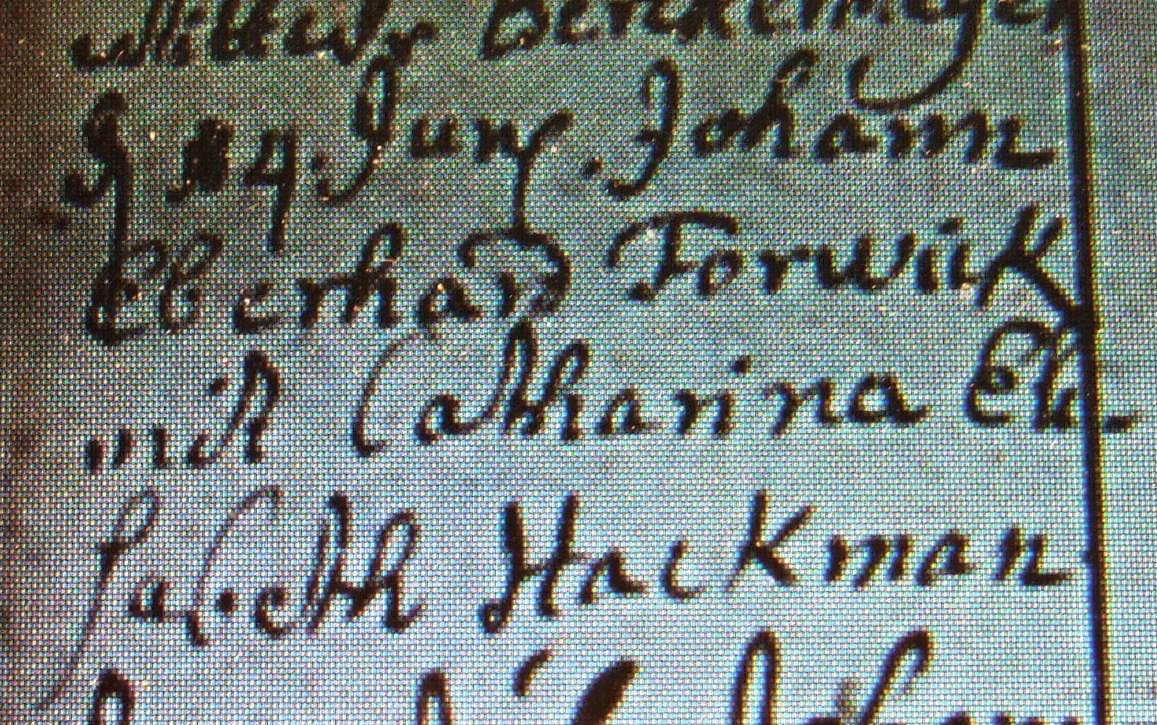 Wittwer Berckemeyer
J 24. Jung. Johann
Eberhard Forwick
mit Catharina Eli-
sabeth Hackman